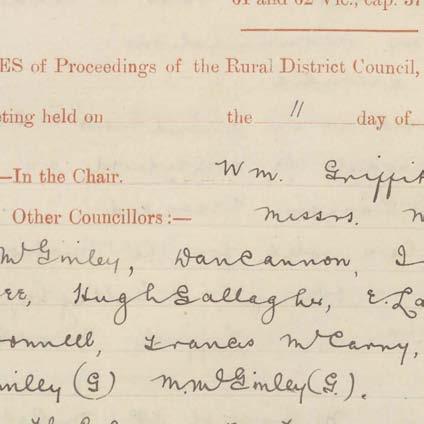 61 and 62 Vic., cap. 37
ES of Proceedings of the Rural District Council,
ting held on the 11 day of
—In the Chair. Wm. Griffith
Other Councillors:— Messrs.
McGinley, Dan Cannon, I
ee, Hugh Gallagher, E. La
onnell, Francis McCarry,
inley (G) M. McGinley (G.).